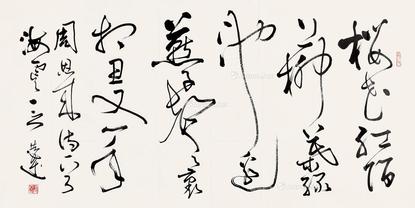 樱花红陌
上柳叶绿
池边
燕子声声里
相思又一年
周恩来诗